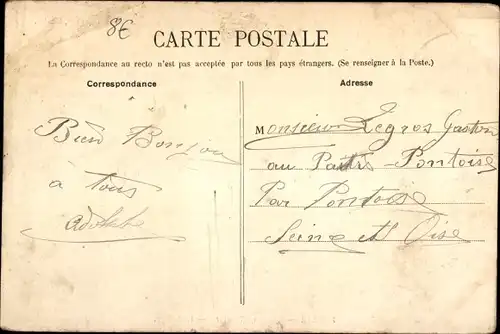 8€
CARTE POSTALE
La Correspondance au recto n'est pas acceptée par tous les pays étrangers. (Se renseigner à la Poste.)
Correspondance
Adresse
Bien Bonjour
à tous
Adolphe
Monsieur Legros Gaston
au - Pontoise
Par Pontoise
Seine et Oise